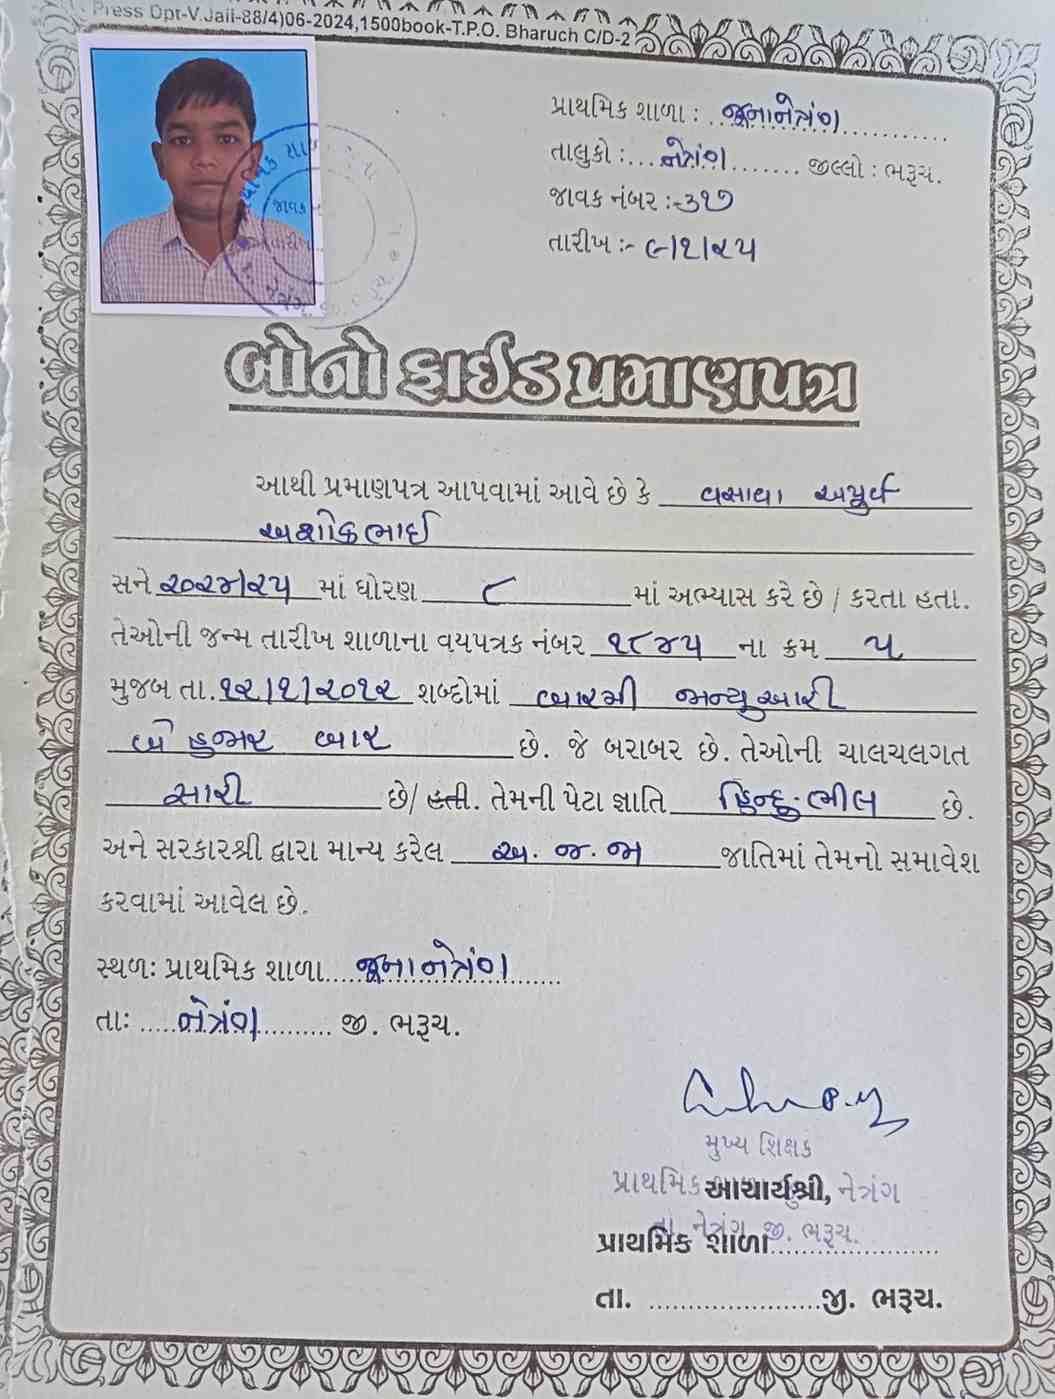 Press Dpt-V.Jail-88/4)06-2024,1500book-T.P.O. Bharuch C/D-2
પ્રાથમિક શાળા : જૂનાનેત્રંગ
તાલુકો : નેત્રંગ જીલ્લો : ભરૂચ.
જાવક નંબર :- ૩૧૭
તારીખ :- ૯/૧/૨૫
બોનોફાઈડ પ્રમાણપત્ર
આથી પ્રમાણપત્ર આપવામાં આવે છે કે વસાવા અપૂર્વ
અશોકભાઈ
સને ૨૦૨૪/૨૫ માં ધોરણ ૮ માં અભ્યાસ કરે છે / કરતા હતા.
તેઓની જન્મ તારીખ શાળાના વયપત્રક નંબર ૧૮૪૫ ના ક્રમ ૫
મુજબ તા. ૧૨/૧/૨૦૧૨ શબ્દોમાં બારમી જાન્યુઆરી
બે હજાર બાર છે. જે બરાબર છે. તેઓની ચાલચલગત
સારી છે/ હતી. તેમની પેટા જ્ઞાતિ હિન્દુ-ભીલ છે.
અને સરકારશ્રી દ્વારા માન્ય કરેલ અ. જ. જા જાતિમાં તેમનો સમાવેશ
કરવામાં આવેલ છે.
સ્થળઃ પ્રાથમિક શાળા જૂનાનેત્રંગ
તાઃ નેત્રંગ જી. ભરૂચ.
મુખ્ય શિક્ષક
પ્રાથમિક નેત્રંગ
આચાર્યશ્રી,
તા. નેત્રંગ જી. ભરૂચ.
પ્રાથમિક શાળા
તા. જી. ભરૂચ.